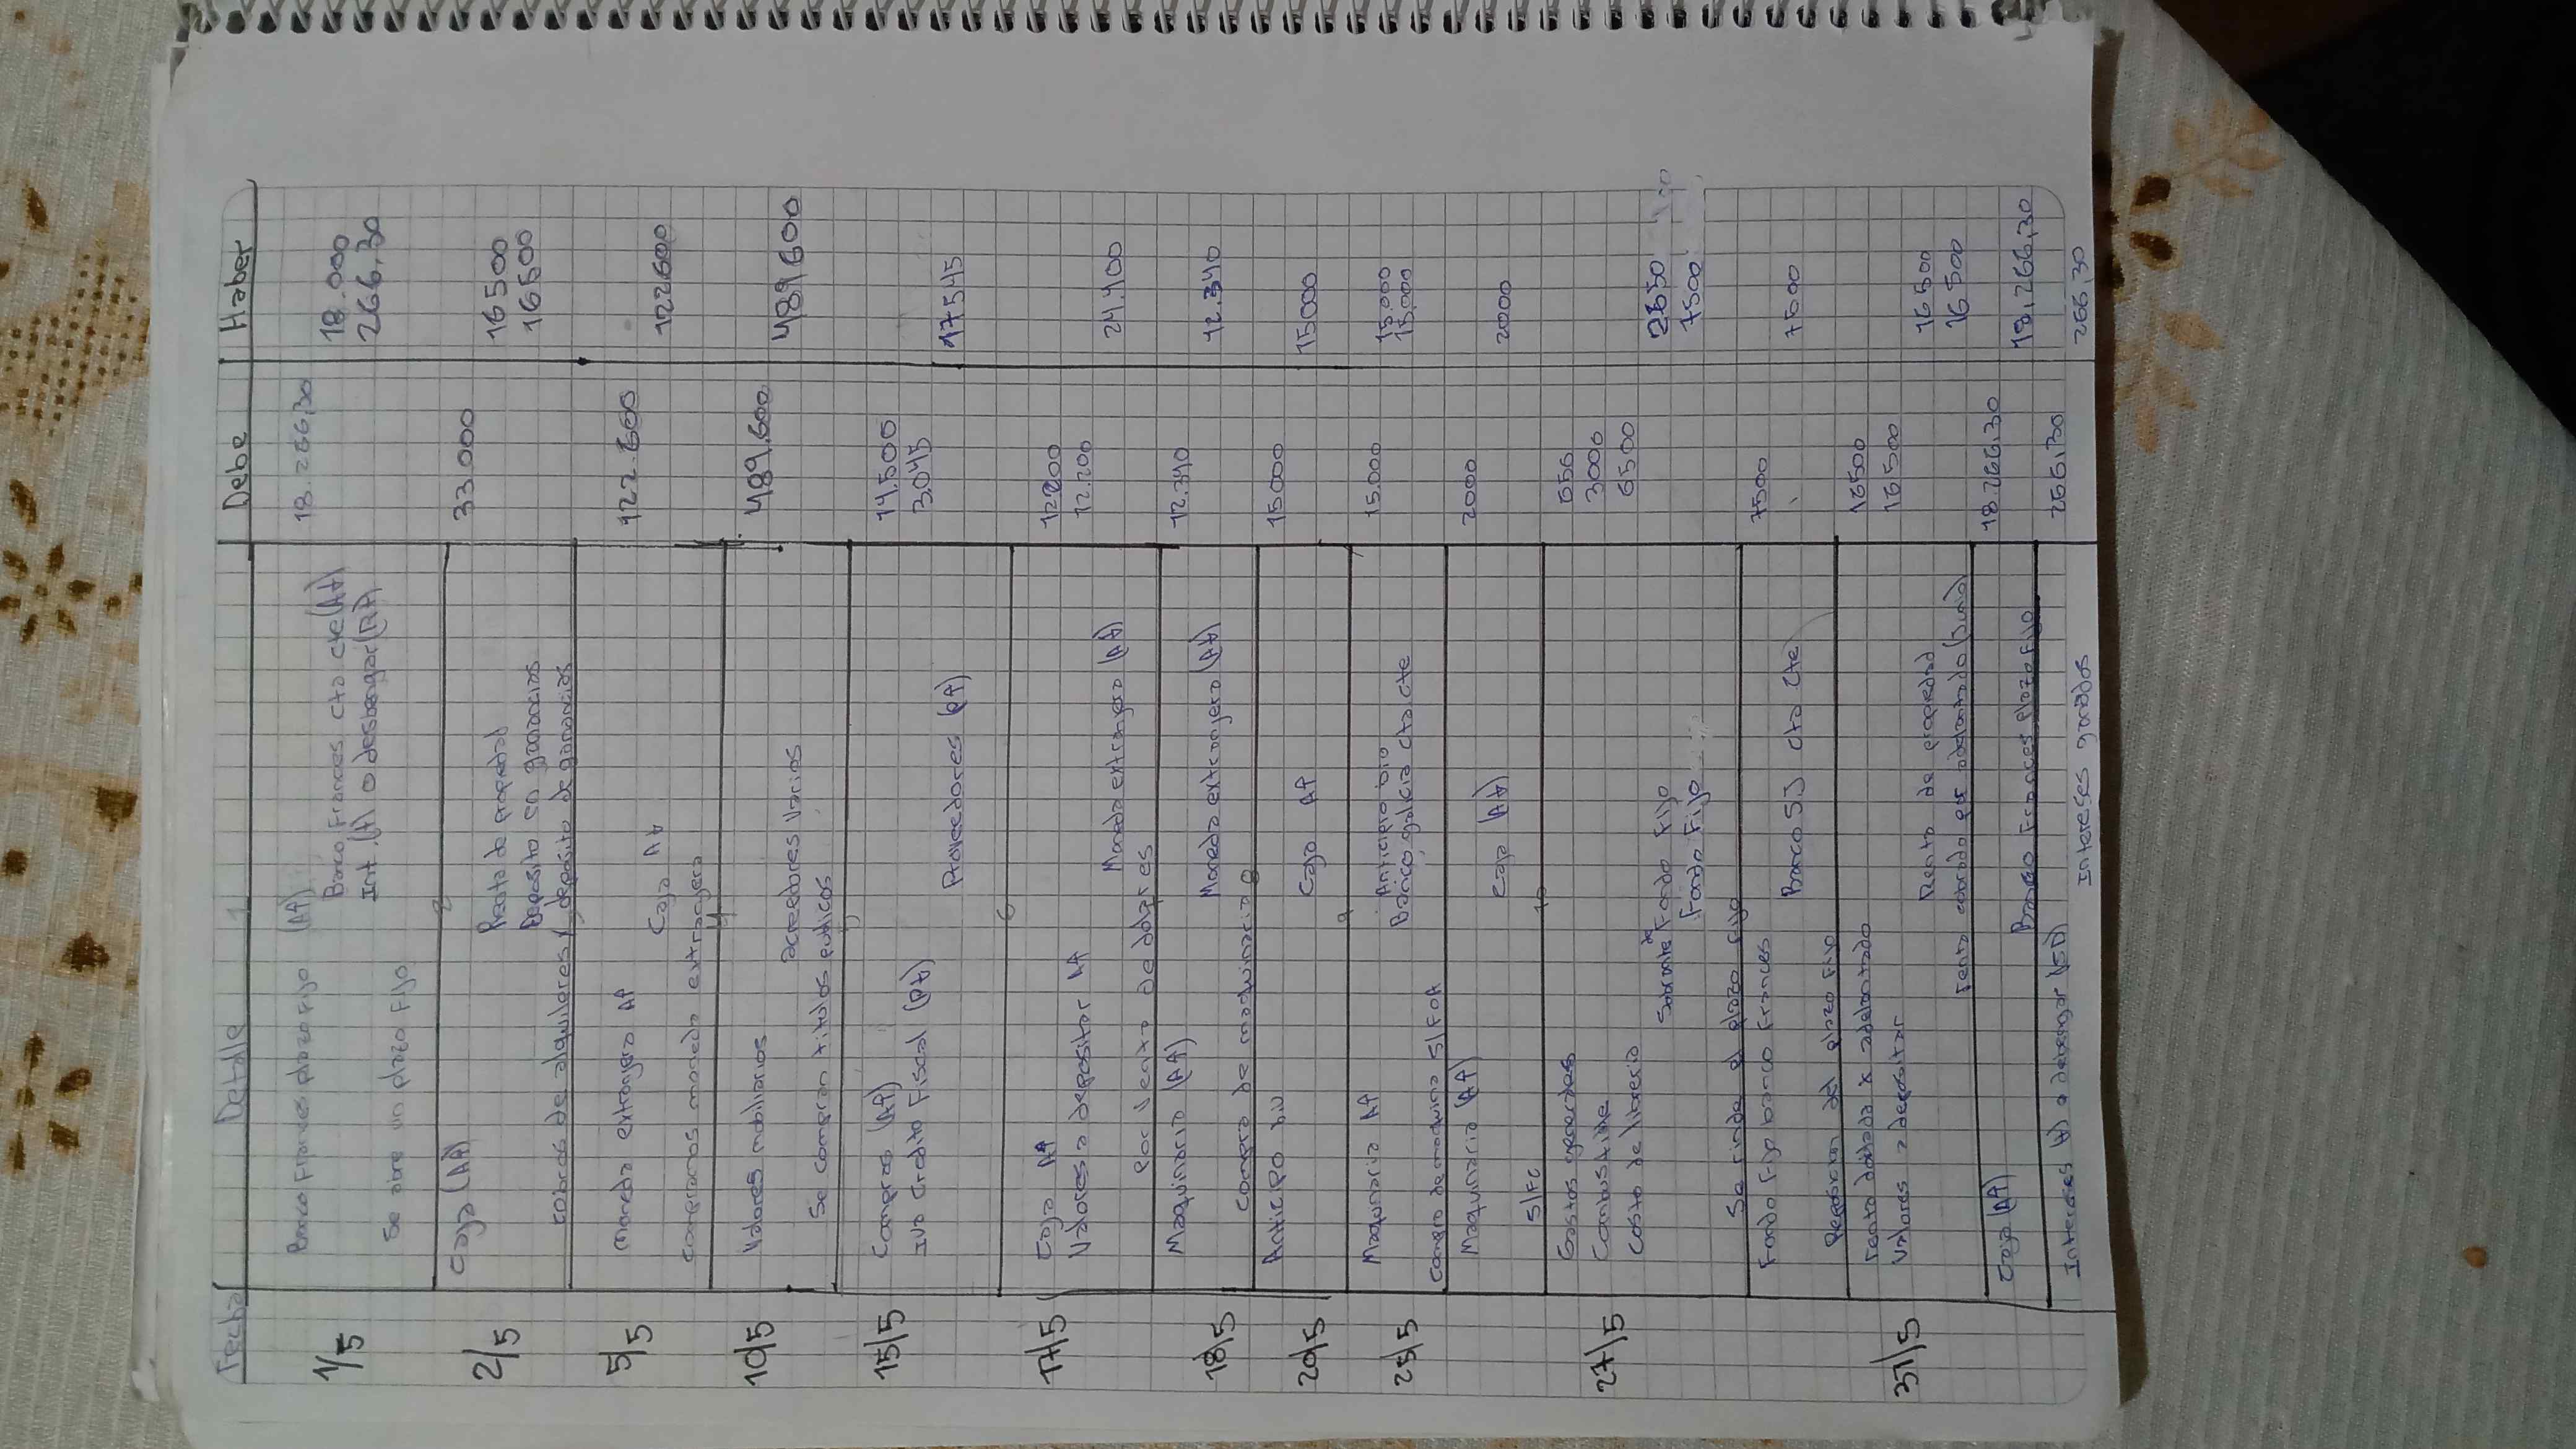 Fecha Detalle 1 Debe Haber
1/5 Banco Frances plazo Fijo (A+) 18.266,30
Banco Frances cta cte (A+) 18.000
Int. (+) a desbengar (RA) 266,30
Se abre un plazo Fijo
2
2/5 Caja (A+) 33.000
Renta de propiedad 16500
Deposito en garancias 16500
cobros de alquileres y deposito de garancias
5/5 Moneda extranjera A+ 122.600
Caja A+ 122600
compramos moneda extranjera
4
10/5 Valores mobiliarios 489.600
acreedores Varios 489600
Se compran titulos publicos
5
15/5 Compras (A+) 14.500
IVA Credito Fiscal (P+) 3.045
Proveedores (P+) 17545
6
17/5 Caja A+ 12200
Valores a depositar A+ 12.200
Moneda extranjera (A+) 24.400
Por venta de dolares
7
18/5 Maquinaria (A+) 12.340
Moneda extranjera (A+) 12.340
Compra de maquinaria
8
20/5 Anticipo 15000
Caja A+ 15000
9
25/5 Maquinaria A+ 15.000
Anticipo 15.000
Banco galicia cta cte 15.000
compra de maquina S/FOA
Maquinaria (A+) 2000
Caja (A+) 2000
S/FC
10
27/5 Gastos generales 656
Combustible 3000
Costo de libreria 6500
Sobrante de Fondo Fijo 2650
Fondo Fijo 7500
Se rinde el plazo Fijo
Fondo Fijo banco Frances 7500
Banco SJ cta cte 7500
Reposicion del plazo Fijo
31/5 renta cobrada x adelantado 16500
Valores a depositar 16500
Renta de propiedad 16500
renta cobrada por adelantado (Junio) 16500
Caja (A+) 18.266,30
Banco Frances plazo Fijo 18.266,30
Intereses (+) a debengar (SD) 266,30
Intereses ganados 266,30